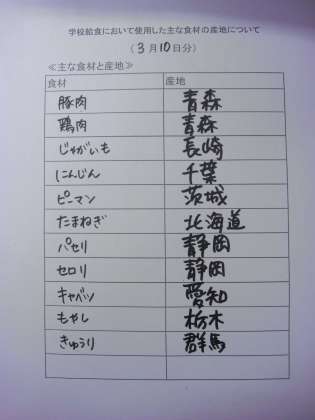 学校給食において使用した主な食材の産地について
（3月10日分）
≪主な食材と産地≫
食材 産地
豚肉 青森
鶏肉 青森
じゃがいも 長崎
にんじん 千葉
ピーマン 茨城
たまねぎ 北海道
パセリ 静岡
セロリ 静岡
キャベツ 愛知
もやし 栃木
きゅうり 群馬